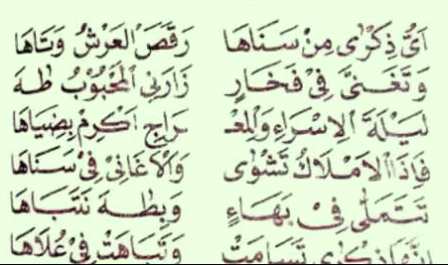 اَىُّ ذِكْرٰى مِنْ سَنَاهَا رَقَصَ الْعَرْشُ وَتَاهَا
وَتَغَنىَّ فِىْ فَخَارٍ زَارَنِى الْمَحْبُوْبُ طٰهَ
لَيْلَةَ الْاِسْرَاءِ وَالْمِعْـ ـرَاجِ اَكْرِمْ بِضِيَاهَا
فَاِذَا الْاَمْلَاكُ تَشْوٰى وَالْاَغَانِىْ فِىْ سَنَاهَا
تَتَمَلّٰى فِىْ بَهَاءٍ وَبِطٰهَ نَتَبَاهَا
ذِكْرٰى تَسَامَتْ وَتَبَاهَتْ فِىْ عُلَاهَا